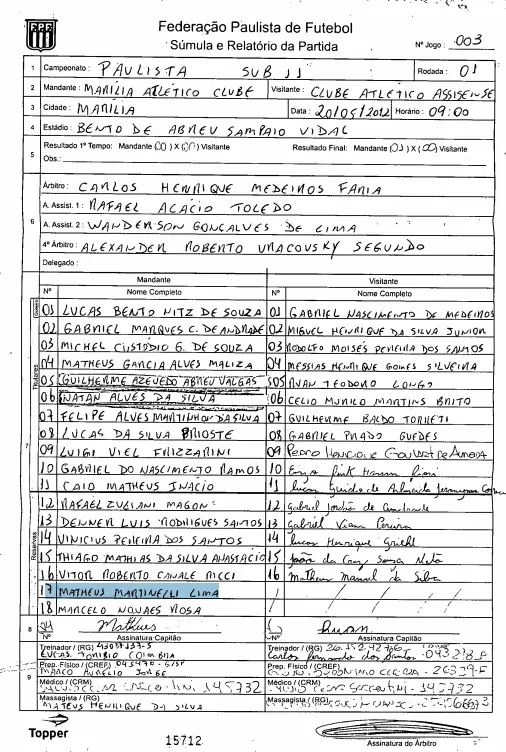 Federação Paulista de Futebol
Súmula e Relatório da Partida
Nº Jogo: 003
1 Campeonato: PAULISTA SUB 11 Rodada: 01
2 Mandante: MARÍLIA ATLÉTICO CLUBE Visitante: CLUBE ATLÉTICO ASSISENSE
3 Cidade: MARÍLIA Data: 20/05/2012 Horário: 09:00
4 Estádio: BENTO DE ABREU SAMPAIO VIDAL
5 Resultado 1º Tempo: Mandante (00) X (00) Visitante Resultado Final: Mandante (01) X (00) Visitante
Obs.:
Árbitro: CARLOS HENRIQUE MEDEIROS FARIA
A. Assist. 1: RAFAEL ACACIO TOLEDO
6 A. Assist. 2: WANDERSON GONÇALVES DE LIMA
4º Árbitro: ALEXANDER ROBERTO URACOUSKY SEGUNDO
Delegado:
Mandante Visitante
Nº Nome Completo Nº Nome Completo
01 LUCAS BENTO NITZ DE SOUZA 01 GABRIEL NASCIMENTO DE MEDEIROS
02 GABRIEL MARQUES C. DE ANDRADE 02 MIGUEL HENRIQUE DA SILVA JUNIOR
03 MICHEL CUSTÓDIO G. DE SOUZA 03 RODOLFO MOISÉS PEREIRA DOS SANTOS
04 MATHEUS GARCIA ALVES MALIZA 04 MESSIAS HENRIQUE GOMES SILVEIRA
Titulares
05 GUILHERME AZEVEDO ABREU VALGAS 05 RUAN TEODORO LONGO
06 NATAN ALVES DA SILVA 06 CELIO MURILO MARTINS BRITO
07 FELIPE ALVES MARTINHO DA SILVA 07 GUILHERME BALDO TORRETI
7 08 LUCAS DA SILVA BRIOSTE 08 GABRIEL PRADO GUEDES
09 LUIGI VIEL FRIZZARINI 09 Pedro Henrique de Almeida
10 GABRIEL DO NASCIMENTO RAMOS 10
11 CAIO MATHEUS INACIO 11 Lucas Guido de Almeida
12 RAFAEL ZULIANI MAGON 12 Gabriel Jordão de Andrade
13 DENNER LUIS RODRIGUES SANTOS 13 Gabriel Viana Pereira
14 VINICIUS PEREIRA DOS SANTOS 14 Lucas Henrique
Reservas
15 THIAGO MATHIAS DA SILVA ANASTACIO 15 João da Cruz Souza Neto
16 VITOR ROBERTO CANALE RICCI 16 Matheus Manoel da Silva
17 MATHEUS MARTINELLI LIMA
18 MARCELO NOVAES ROSA
8 Matheus Ruan
Nº Assinatura Capitão Nº Assinatura Capitão
Treinador / (RG) LUCAS COIMBRA Treinador / (RG) Carlos Fernando dos Santos
9 Prep. Físico / (CREF) MARCO AURELIO JORGE Prep. Físico / (CREF)
Médico / (CRM) Médico / (CRM)
Massagista / (RG) MATEUS HENRIQUE DA SILVA Massagista / (RG)
Topper
15712
Assinatura do Árbitro